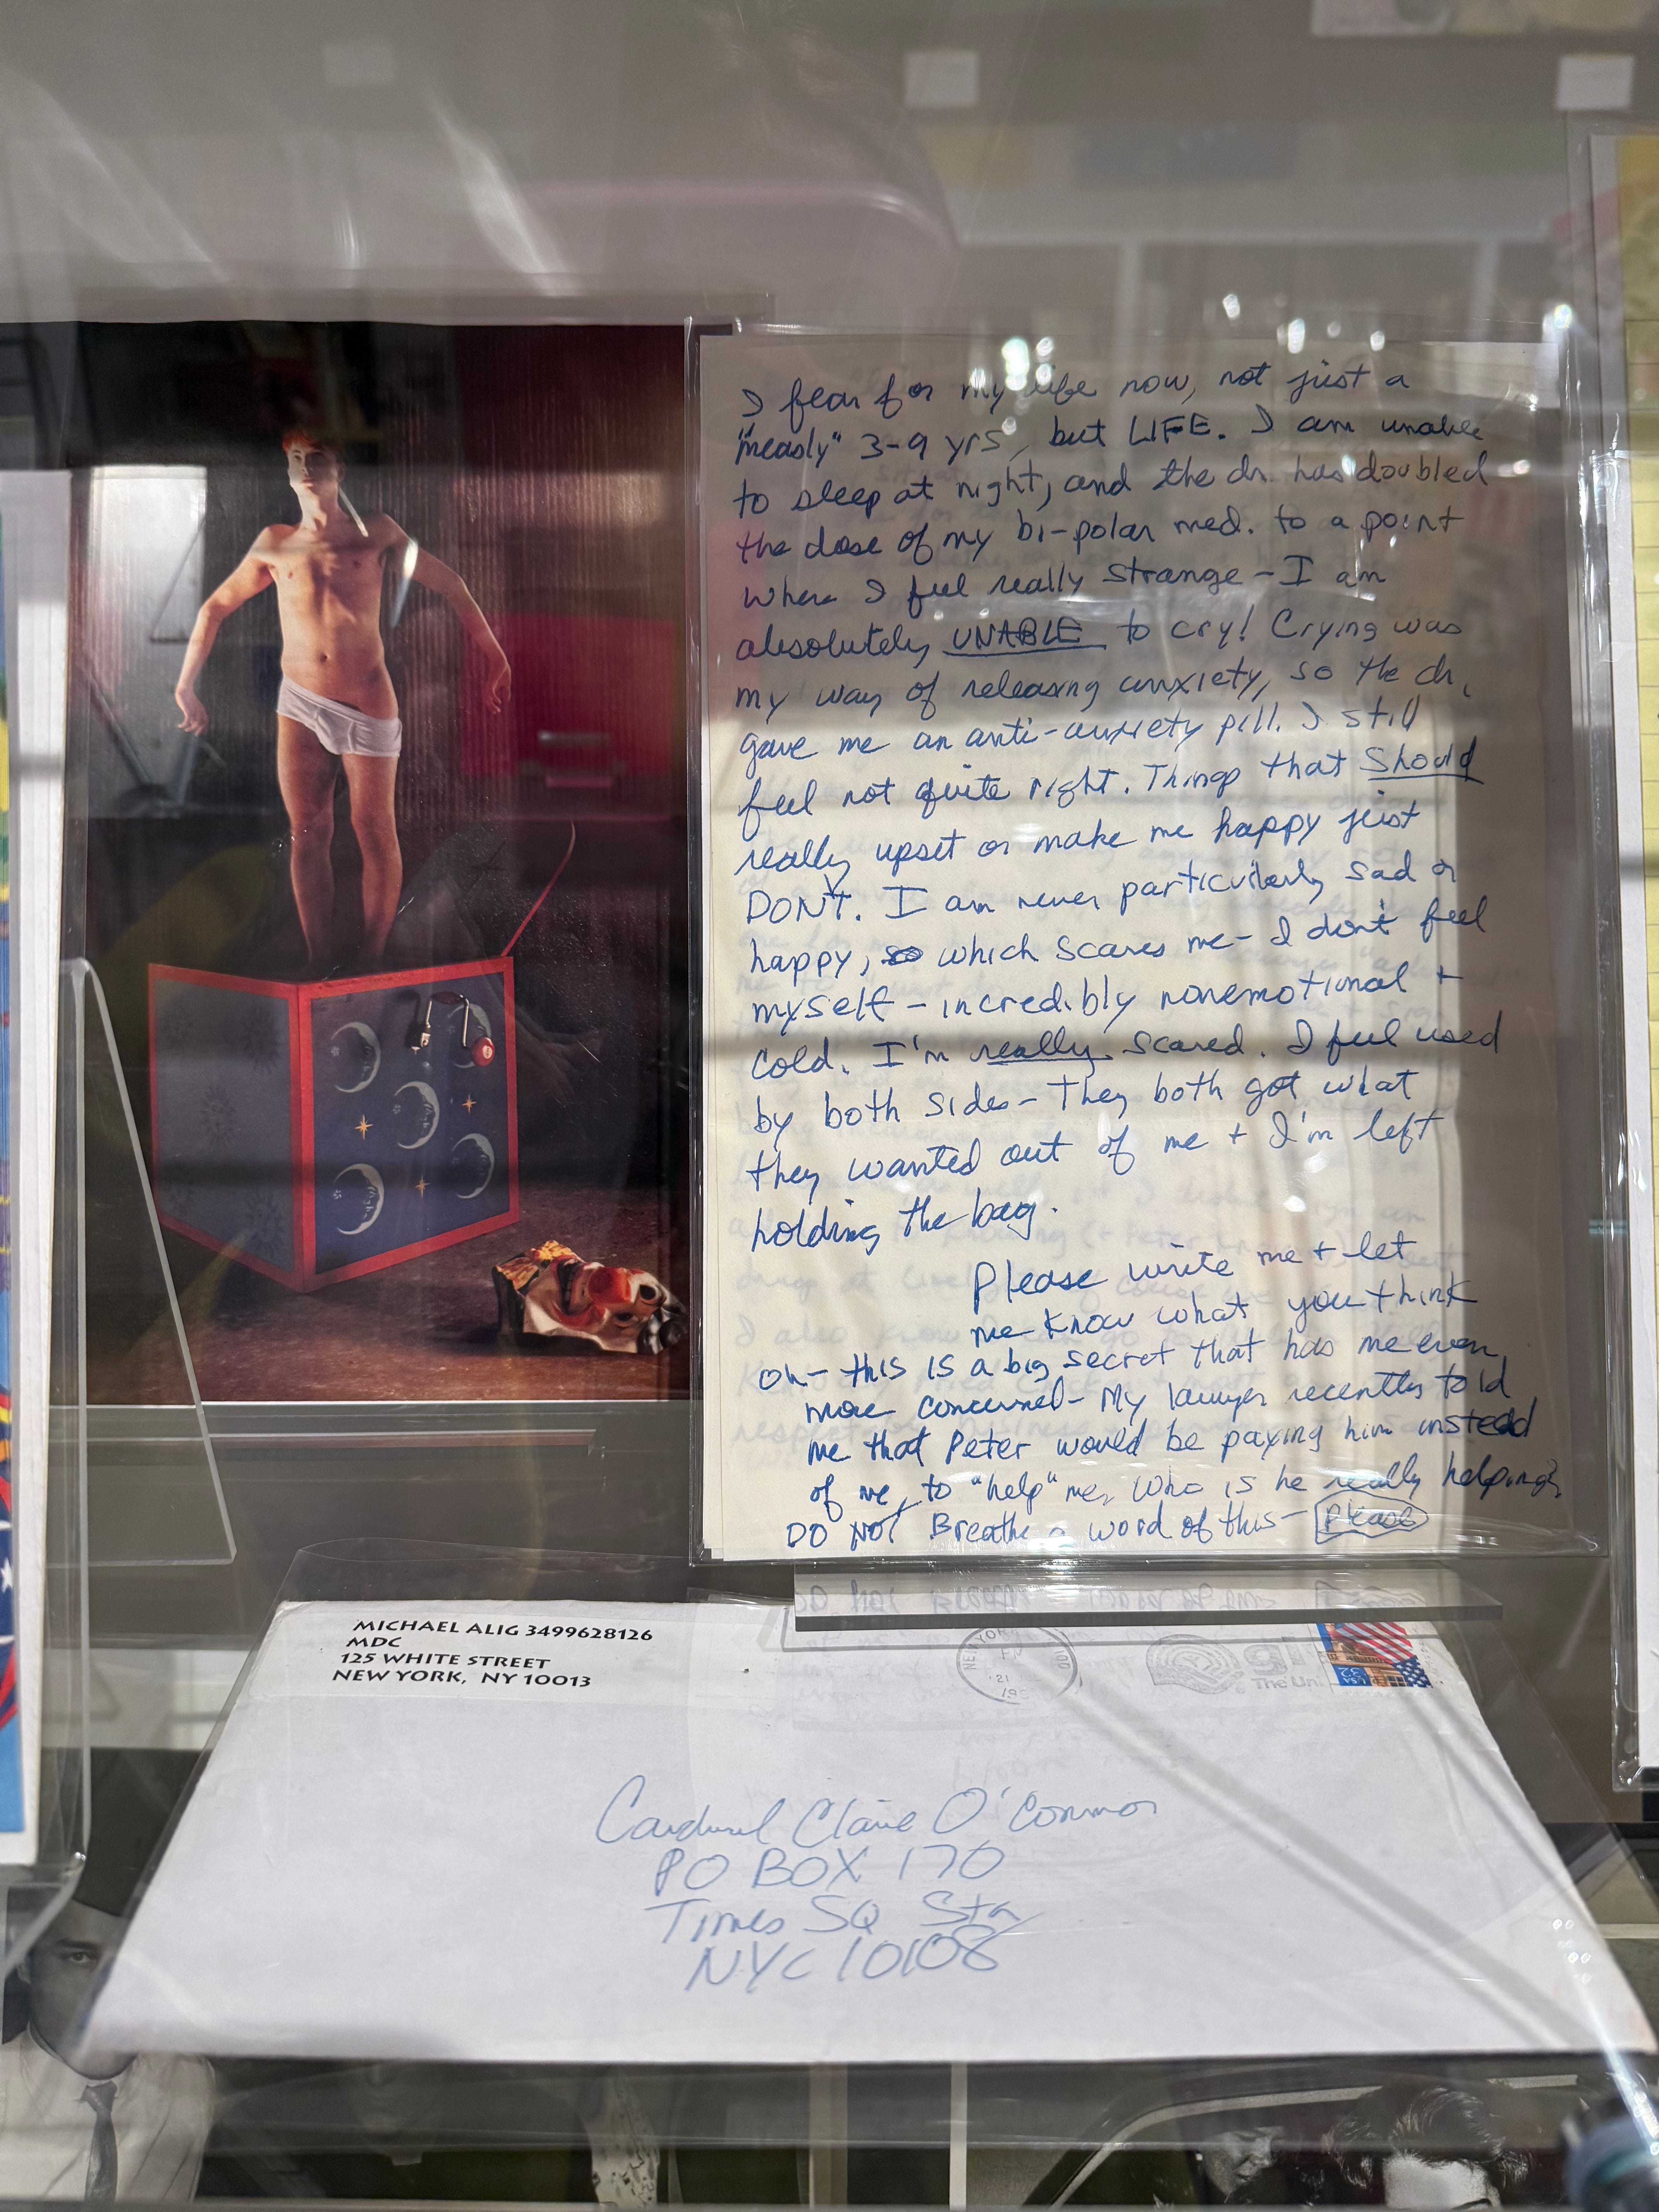 I fear for my life now, not just a
"measly" 3-9 yrs, but LIFE. I am unable
to sleep at night, and the dr. has doubled
the dose of my bi-polar med. to a point
where I feel really strange - I am
absolutely UNABLE to cry! Crying was
my way of releasing anxiety, so the dr.
gave me an anti-anxiety pill. I still
feel not quite right. Things that Should
really upset or make me happy just
DON'T. I am never particularly sad or
happy, so which scares me - I don't feel
myself - incredibly nonemotional +
cold. I'm really scared. I feel used
by both sides - They both got what
they wanted out of me + I'm left
holding the bag.
Please write me + let
me know what you think
Oh - this is a big secret that has me even
more concerned - My lawyer recently told
me that Peter would be paying him instead
of me, to "help" me. Who is he really helping?
DO NOT Breathe a word of this - Please
MICHAEL ALIG 3499628126
MDC
125 WHITE STREET
NEW YORK, NY 10013
NEW YORK
PM
21
The Uni
Cardinal Claire O'Connor
PO BOX 170
Times SQ Sta
NYC 10108